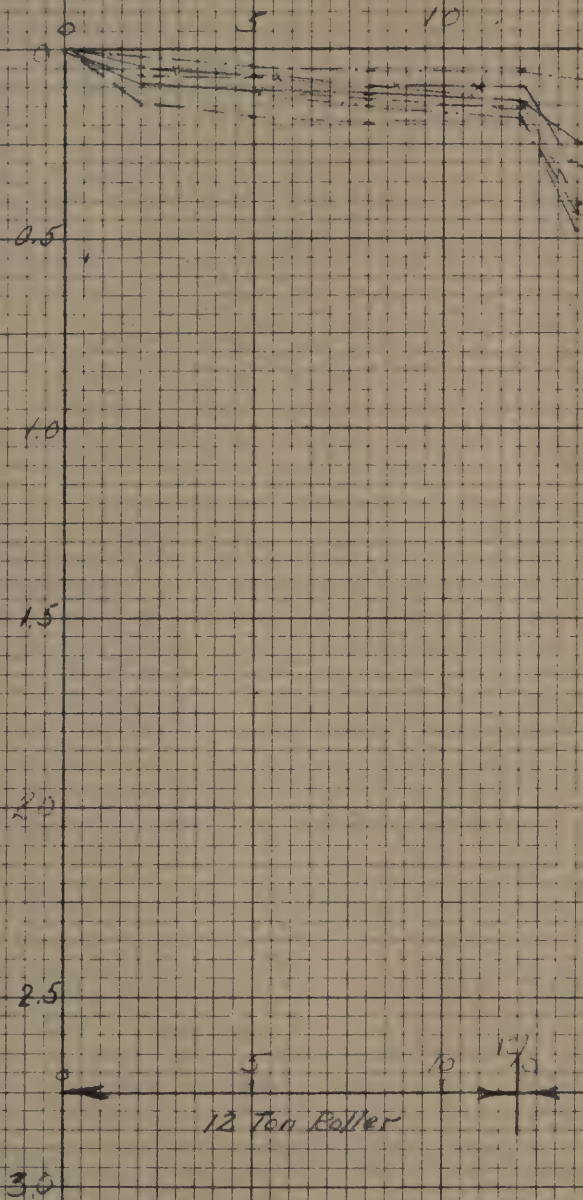 0 5 10
0
0.5
1.0
1.5
2.0
2.5
0 5 10
12 Ton Roller
3.0